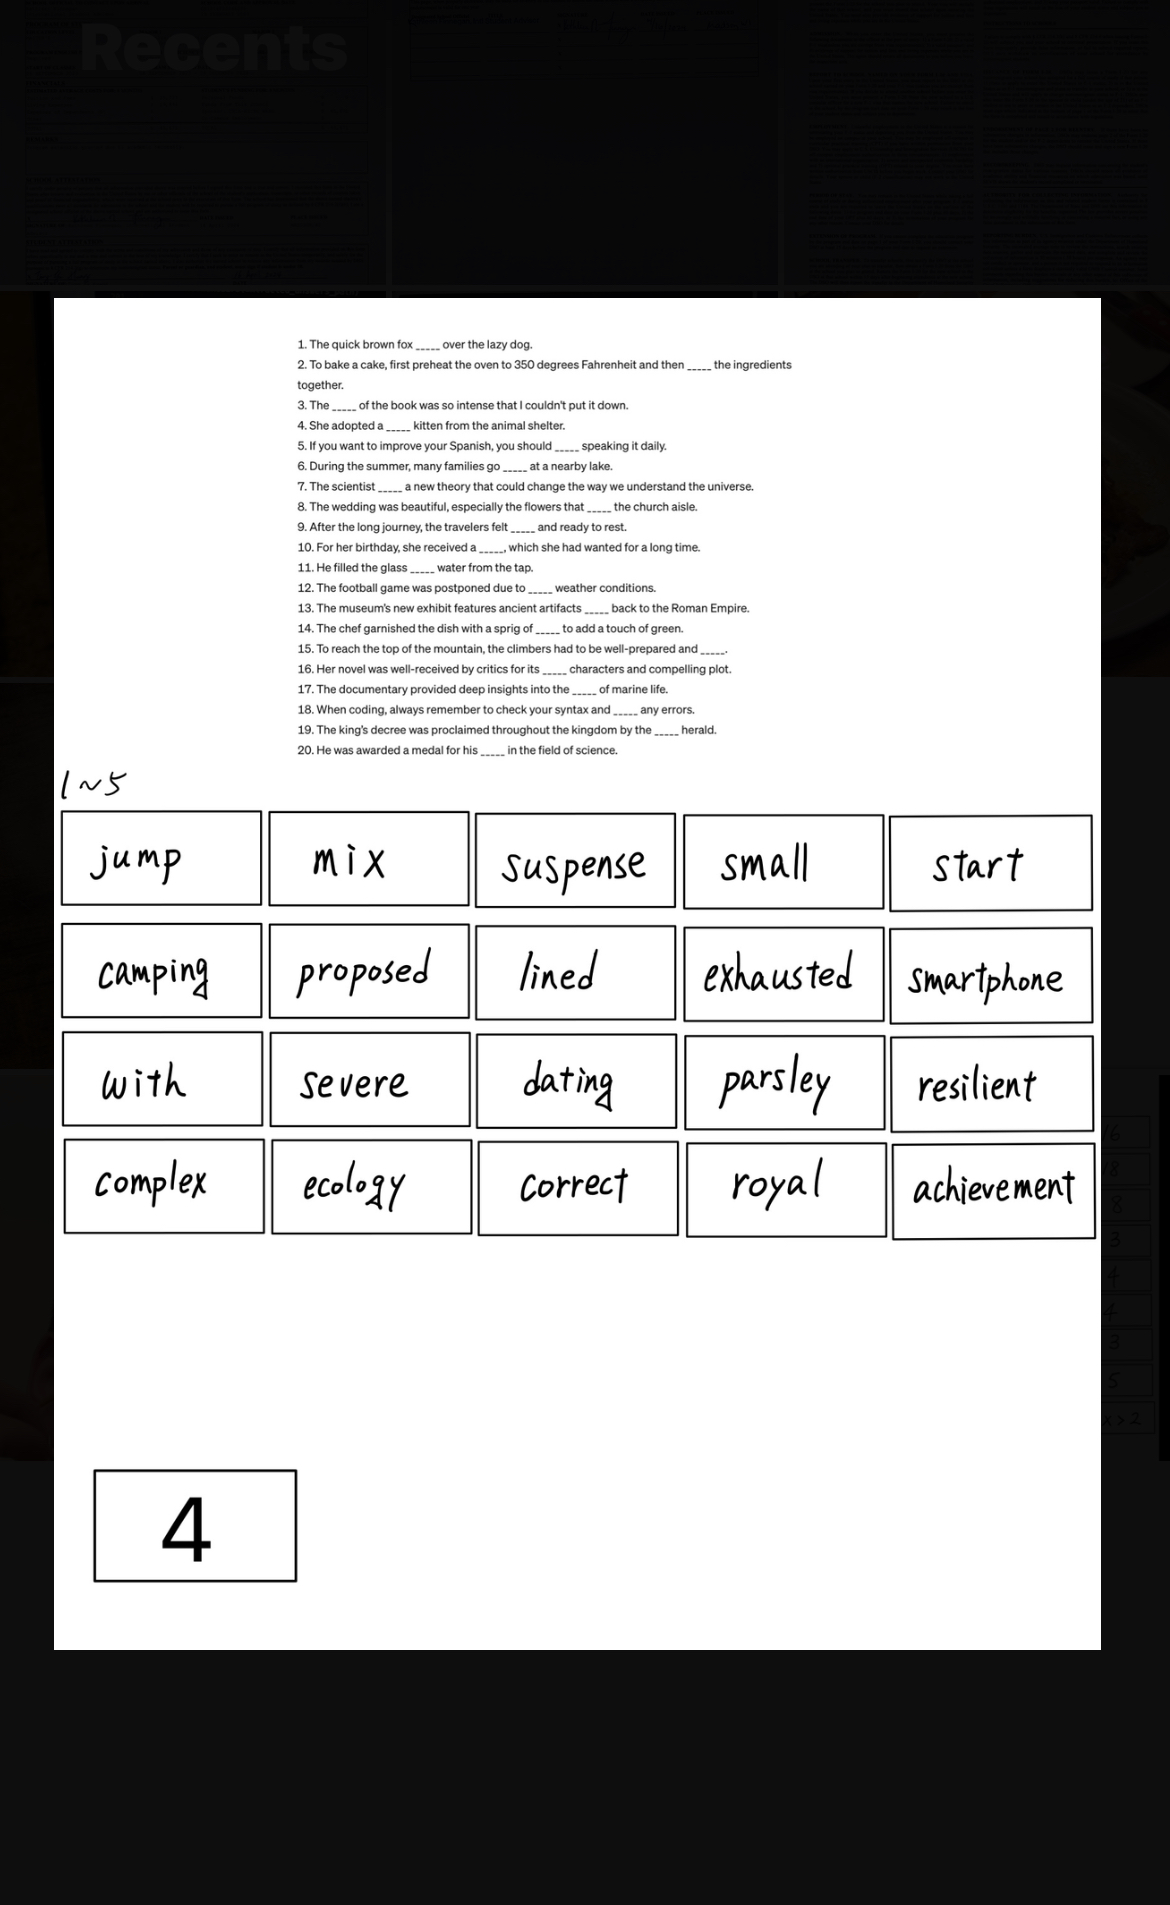 Recents
1. The quick brown fox _____ over the lazy dog.
2. To bake a cake, first preheat the oven to 350 degrees Fahrenheit and then _____ the ingredients
together.
3. The _____ of the book was so intense that I couldn't put it down.
4. She adopted a _____ kitten from the animal shelter.
5. If you want to improve your Spanish, you should _____ speaking it daily.
6. During the summer, many families go _____ at a nearby lake.
7. The scientist _____ a new theory that could change the way we understand the universe.
8. The wedding was beautiful, especially the flowers that _____ the church aisle.
9. After the long journey, the travelers felt _____ and ready to rest.
10. For her birthday, she received a _____, which she had wanted for a long time.
11. He filled the glass _____ water from the tap.
12. The football game was postponed due to _____ weather conditions.
13. The museum's new exhibit features ancient artifacts _____ back to the Roman Empire.
14. The chef garnished the dish with a sprig of _____ to add a touch of green.
15. To reach the top of the mountain, the climbers had to be well-prepared and _____.
16. Her novel was well-received by critics for its _____ characters and compelling plot.
17. The documentary provided deep insights into the _____ of marine life.
18. When coding, always remember to check your syntax and _____ any errors.
19. The king's decree was proclaimed throughout the kingdom by the _____ herald.
20. He was awarded a medal for his _____ in the field of science.
1~5
jump mix suspense small start
camping proposed lined exhausted smartphone
with severe dating parsley resilient
complex ecology correct royal achievement
4